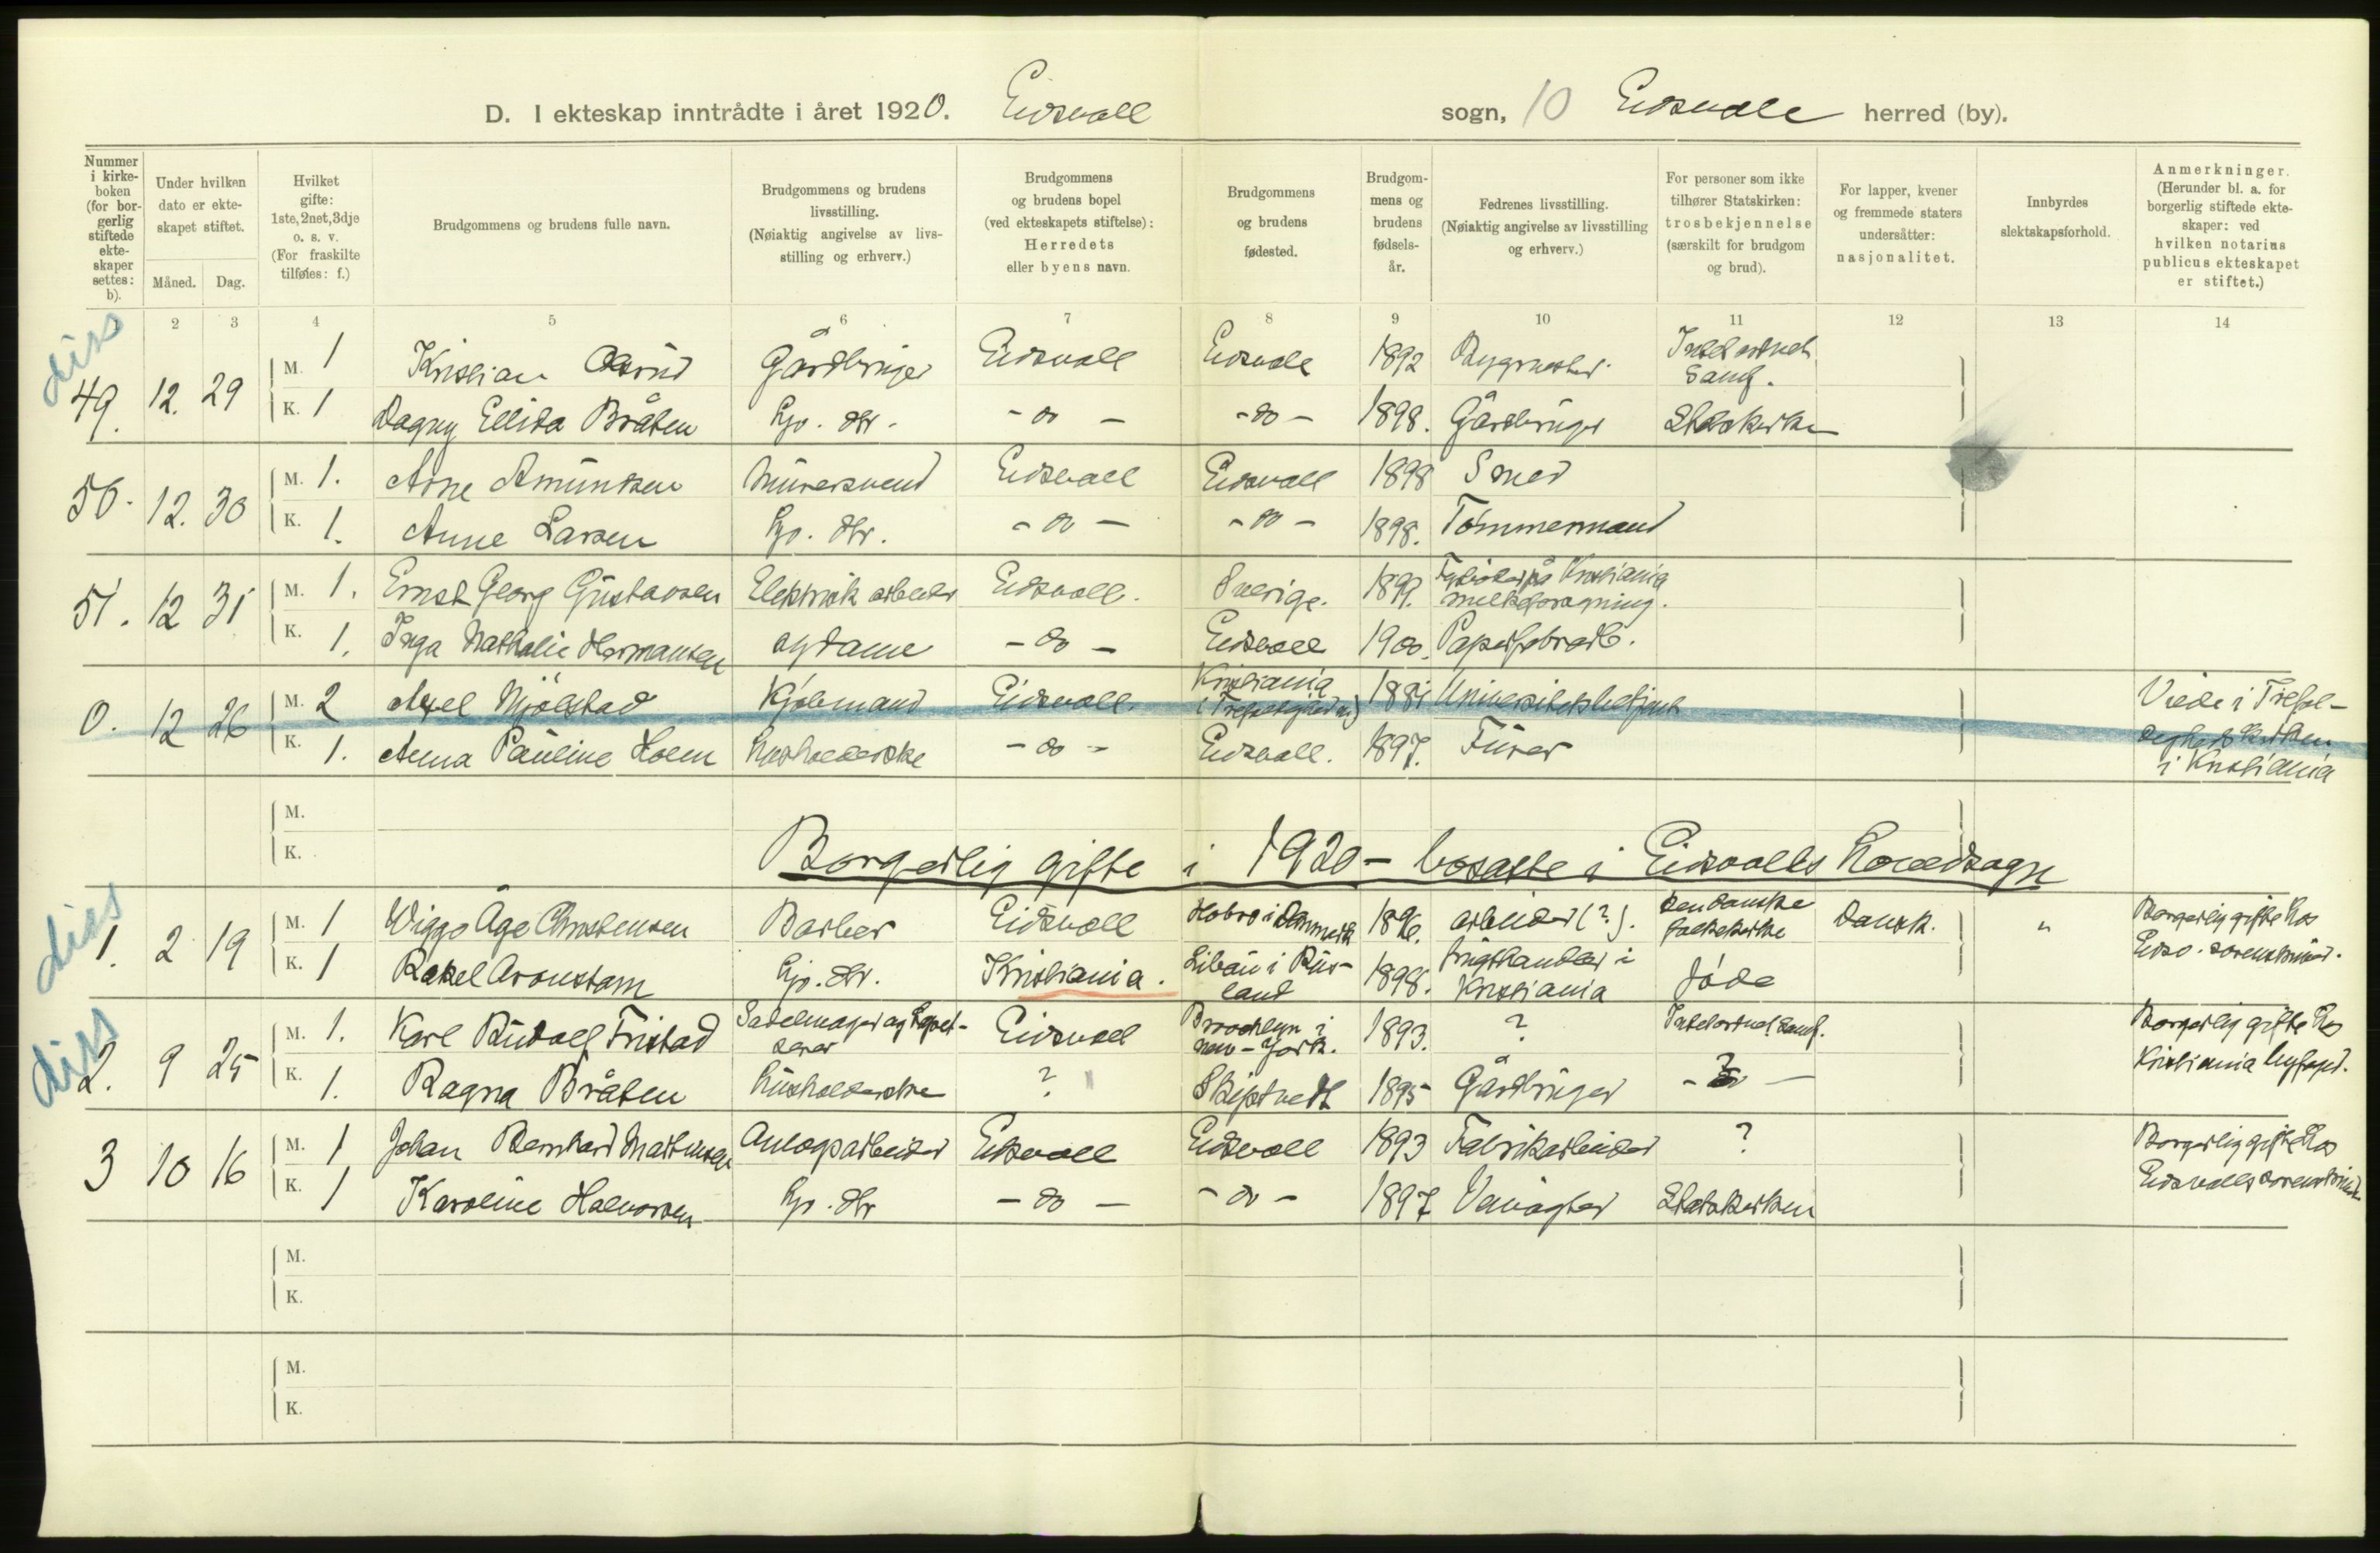 D. I ekteskap inntrådte i året 1920. Eidsvoll sogn, 10 Eidsvoll herred (by).
Nummer i kirke-boken (for bor-gerlig stiftede ekte-skaper settes: b).
Under hvilken dato er ekte-skapet stiftet.
Måned. Dag.
Hvilket gifte: 1ste, 2net, 3dje o. s. v. (For fraskilte tilføies: f.)
Brudgommens og brudens fulle navn.
Brudgommens og brudens livsstilling. (Nøiaktig angivelse av livs-stilling og erhverv.)
Brudgommens og brudens bopel (ved ekteskapets stiftelse): Herredets eller byens navn.
Brudgommens og brudens fødested.
Brudgom-mens og brudens fødsels-år.
Fedrenes livsstilling. (Nøiaktig angivelse av livsstilling og erhverv.)
For personer som ikke tilhører Statskirken: trosbekjennelse (særskilt for brudgom og brud).
For lapper, kvener og fremmede staters undersåtter: nasjonalitet.
Innbyrdes slektskapsforhold.
Anmerkninger. (Herunder bl. a. for borgerlig stiftede ekte-skaper: ved hvilken notarius publicus ekteskapet er stiftet.)
1 2 3 4 5 6 7 8 9 10 11 12 13 14
diss
49. 12. 29 M. 1 Kristian Gårdbruger Eidsvoll Eidsvoll 1892 Bygmester. Samf.
K. 1 Dagny Ellida Bråten Hjv. dtr. - do - - do - 1898. Gårdbruger Statskirken
50. 12. 30 M. 1. Arne Amundsen Murersvend Eidsvoll Eidsvoll 1898 Smed
K. 1. Anne Larsen Hjv. dtr. - do - - do - 1898. Tømmermand
51. 12 31 M. 1. Ernst Georg Gustavsen Elektrisk arbeider Eidsvoll. Sverige. 1899. på Kristiania melkeforsyning.
K. 1. Inga Nathalie Hermansen sydame - do - Eidsvoll 1900. Papirfabrarb.
0. 12 26 M. 2 Axel Mjølstad Kjøbmand Eidsvoll. Kristiania 1881 Universitetsbetjent Viede i Trefol-
K. 1. Anna Pauline Holm Husholderske - do - Eidsvoll. 1897. Furer dighetskirken i Kristiania
M.
K.
Borgerlig gifte i 1920 - bosatte i Eidsvolls hovedsogn
diss
1. 2 19 M. 1 Wiggo Åge Christensen Barber Eidsvoll Hobro i Danmark 1896. arbeider (?). Den danske folkekirke Dansk. " Borgerlig gifte hos Eidsv. sorenskriver.
K. 1 Rakel Aronstam Hjv. dtr. Kristiania. Libau i Rus-land 1898. frugthandler i Kristiania Jøde
diss
2. 9 25 M. 1. Karl Rudolf Fristad Sadelmager og tapet-serer Eidsvoll Broocklyn i New-York. 1893. ? Borgerlig gifte hos Kristiania byfoged.
K. 1. Ragna Bråten Husholderske ? Skiptvedt 1895 Gårdbruger - do -
3 10 16 M. 1 Johan Bernhard Martinsen Anlægsarbeider Eidsvoll Eidsvoll 1893 Fabrikarbeider ? Borgerlig gifte hos Eidsvolls sorenskriver
K. 1 Karoline Halvorsen Hjv. dtr - do - - do - 1897 Statskirken
M.
K.
M.
K.